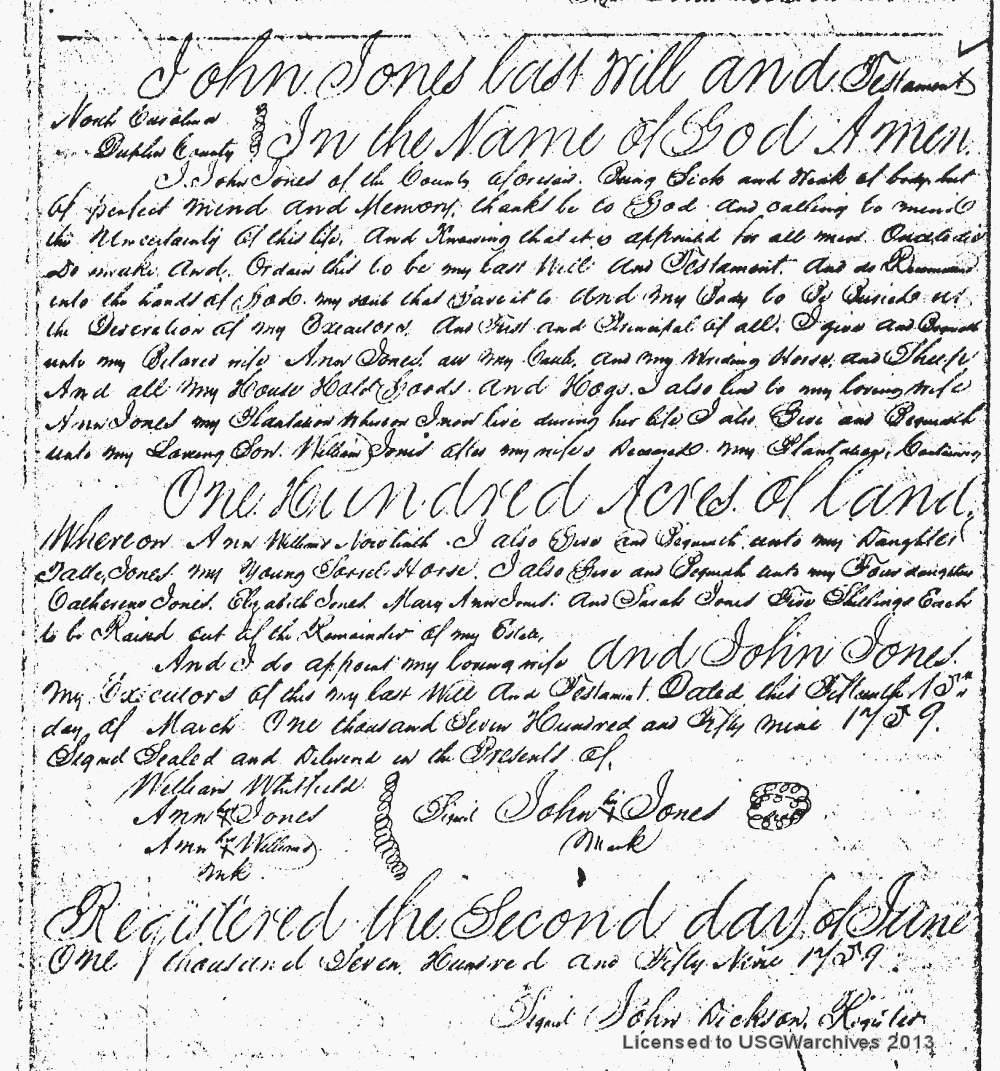 John Jones Last Will and Testament
North Carolina
Duplin County In the Name of God Amen.
I John Jones of the County aforesaid. Being Sick and Weak of body but
of perfect Mind and Memory, thanks be to God and calling to mind
the Uncertainty of this life, And Knowing that it is appointed for all men Once to die
Do make And Ordain this to be my Last Will and Testament. And do Recommend
into the hands of God my soul that Gave it to And my Body to Be Buried at
the Descretion of my Executors, And First and Principal of all, I give and Bequeath
unto my Beloved wife Ann Jones all my and my Horse, and Sheep,
And all my House Hold Goods and Hogs. I also to my loving wife
Ann Jones my Plantation Whereon I now live during her life I also Give and Bequeath
unto my Loving Son William Jones after my wife's Decease my Plantation, Containing
One Hundred Acres of Land,
Whereon Ann Williams Now liveth. I also Give and Bequeath unto my Daughter
Jones my Young Sorrel Horse. I also Give and Bequeath unto my Four daughters
Catherene Jones, Elizabeth Jones Mary Ann Jones: and Sarah Jones Five Shillings Each
to be Raised out of the Remainder of my Estate,
And I do appoint my loving wife and John Jones.
My Executors of this my last Will and Testament. Dated this Fifteenth 15th
day of March One thousand Seven Hundred and Fifty nine 1759.
Signed Sealed and Deliverd in the Presents of,
William Whitfield
Ann her X Jones Signd John his X Jones
Ann her X Williams Mark
Mk
Registered the Second day of June
One thousand Seven Hundred and Fifty Nine 1759.
Signed John Dickson, Register
Licensed to USGWarchives 2013